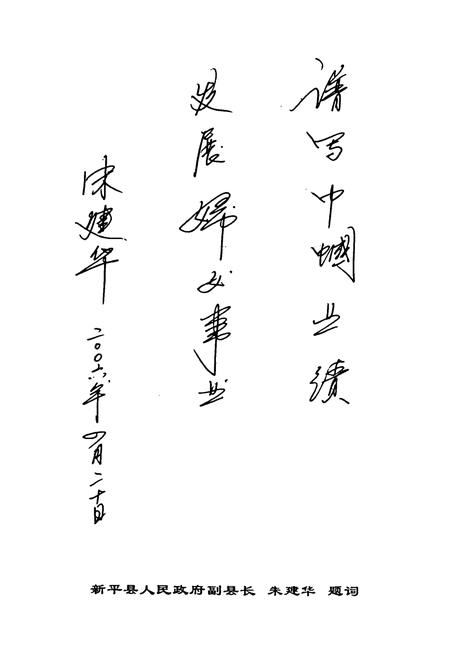 谱写巾帼业绩
发展婦女事业
朱建华 二〇〇六年四月二十日
新平县人民政府副县长 朱建华 题词